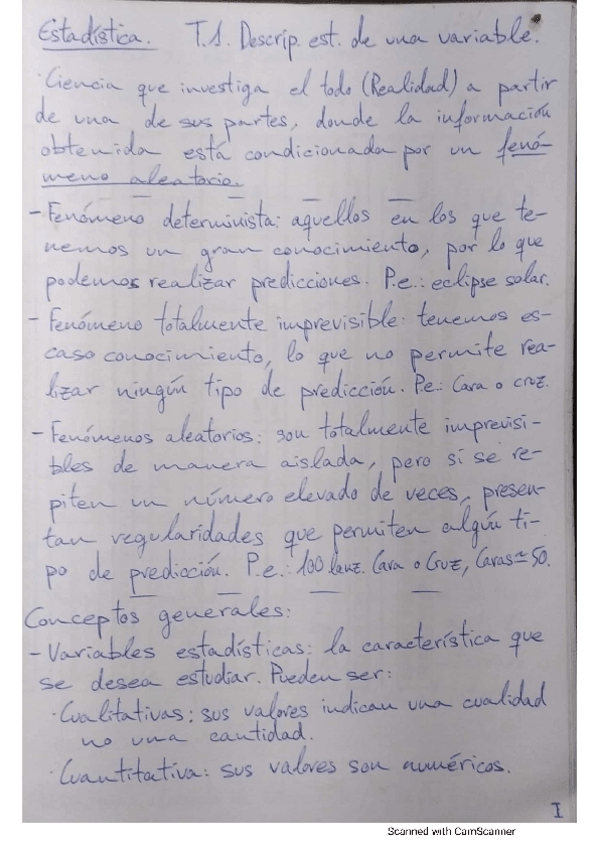 Estadística. T.1. Descrip. est. de una variable.
· Ciencia que investiga el todo (Realidad) a partir
de una de sus partes, donde la información
obtenida está condicionada por un fenó-
meno aleatorio.
- Fenómeno determinista: aquellos en los que te-
nemos un gran conocimiento, por lo que
podemos realizar predicciones. P.e.: eclipse solar.
- Fenómeno totalmente imprevisible: tenemos es-
caso conocimiento, lo que no permite rea-
lizar ningún tipo de predicción. P.e.: Cara o cruz.
- Fenómenos aleatorios: son totalmente imprevisi-
bles de manera aislada, pero si se re-
piten un número elevado de veces, presen-
tan regularidades que permiten algún ti-
po de predicción. P.e.: 100 lanz. Cara o Cruz, Caras ≃ 50.
Conceptos generales:
- Variables estadísticas: la característica que
se desea estudiar. Pueden ser:
· Cualitativas: sus valores indican una cualidad
no una cantidad.
· Cuantitativa: sus valores son numéricos.
I
Scanned with CamScanner